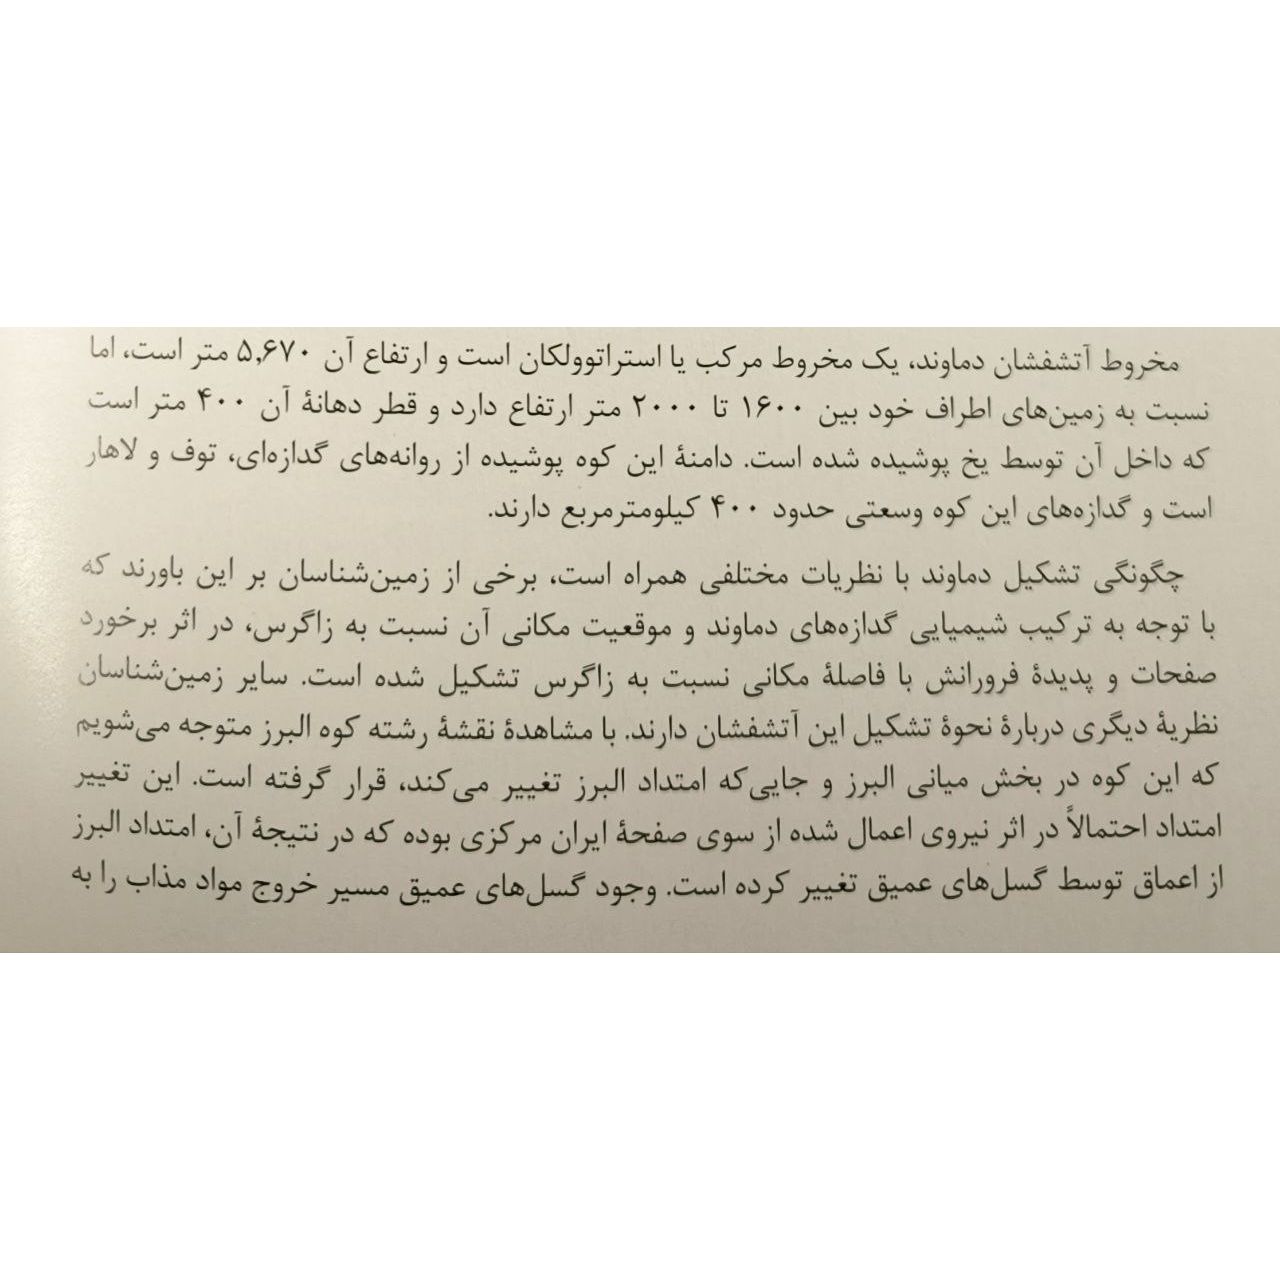 مخروط آتشفشان دماوند، یک مخروط مرکب یا استراتوولکان است و ارتفاع آن ۵٫۶۷۰ متر است، اما
نسبت به زمین‌های اطراف خود بین ۱۶۰۰ تا ۲۰۰۰ متر ارتفاع دارد و قطر دهانهٔ آن ۴۰۰ متر است
که داخل آن توسط یخ پوشیده شده است. دامنهٔ این کوه پوشیده از روانه‌های گدازه‌ای، توف و لاهار
است و گدازه‌های این کوه وسعتی حدود ۴۰۰ کیلومترمربع دارند.
چگونگی تشکیل دماوند با نظریات مختلفی همراه است، برخی از زمین‌شناسان بر این باورند که
با توجه به ترکیب شیمیایی گدازه‌های دماوند و موقعیت مکانی آن نسبت به زاگرس، در اثر برخورد
صفحات و پدیدهٔ فرورانش با فاصلهٔ مکانی نسبت به زاگرس تشکیل شده است. سایر زمین‌شناسان
نظریهٔ دیگری دربارهٔ نحوهٔ تشکیل این آتشفشان دارند. با مشاهدهٔ نقشهٔ رشته کوه البرز متوجه می‌شویم
که این کوه در بخش میانی البرز و جایی‌که امتداد البرز تغییر می‌کند، قرار گرفته است. این تغییر
امتداد احتمالاً در اثر نیروی اعمال شده از سوی صفحهٔ ایران مرکزی بوده که در نتیجهٔ آن، امتداد البرز
از اعماق توسط گسل‌های عمیق تغییر کرده است. وجود گسل‌های عمیق مسیر خروج مواد مذاب را به